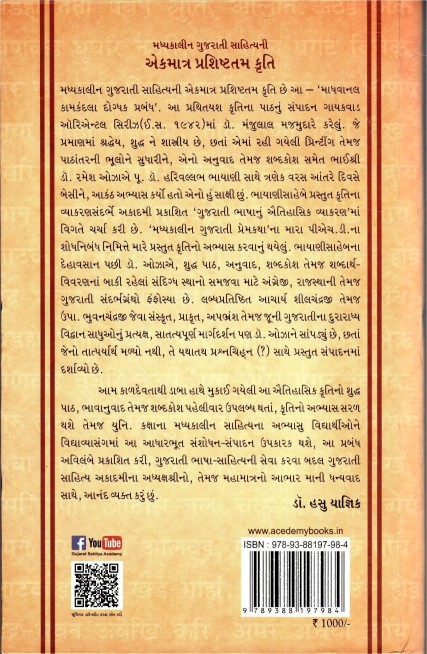 મધ્યકાલીન ગુજરાતી સાહિત્યની
એકમાત્ર પ્રશિષ્ટતમ કૃતિ
મધ્યકાલીન ગુજરાતી સાહિત્યની એકમાત્ર પ્રશિષ્ટતમ કૃતિ છે આ – ‘માધવાનલ
કામકંદલા દોગ્ધક પ્રબંધ’. આ પ્રથિતયશ કૃતિના પાઠનું સંપાદન ગાયકવાડ
ઓરિએન્ટલ સિરીઝ(ઈ.સ. ૧૯૪૨)માં ડો. મંજુલાલ મજમુદારે કરેલું. જે
પ્રમાણમાં શ્રદ્ધેય, શુદ્ધ ને શાસ્ત્રીય છે, છતાં એમાં રહી ગયેલી પ્રિન્ટીંગ તેમજ
પાઠાંતરની ભૂલોને સુધારીને, એનો અનુવાદ તેમજ શબ્દકોશ સમેત ભાઈશ્રી
ડો. રમેશ ઓઝાએ પૂ. ડો. હરિવલ્લભ ભાયાણી સાથે ત્રણેક વરસ આંતરે દિવસે
બેસીને, આકંઠ અભ્યાસ કર્યો હતો એનો હું સાક્ષી છું. ભાયાણીસાહેબે પ્રસ્તુત કૃતિના
વ્યાકરણસંદર્ભે અકાદમી પ્રકાશિત ‘ગુજરાતી ભાષાનું ઐતિહાસિક વ્યાકરણ’માં
વિગતે ચર્ચા કરી છે. ‘મધ્યકાલીન ગુજરાતી પ્રેમકથા’ના મારા પીએચ.ડી.ના
શોધનિબંધ નિમિત્તે મારે પ્રસ્તુત કૃતિનો અભ્યાસ કરવાનું થયેલું. ભાયાણીસાહેબના
દેહાવસાન પછી ડો. ઓઝાએ, શુદ્ધ પાઠ, અનુવાદ, શબ્દકોશ તેમજ શબ્દાર્થ-
વિવરણનાં બાકી રહેલાં સંદિગ્ધ સ્થાનો સમજવા માટે અંગ્રેજી, રાજસ્થાની તેમજ
ગુજરાતી સંદર્ભગ્રંથો ફંફોસ્યા છે. લબ્ધપ્રતિષ્ઠિત આચાર્ય શીલચંદ્રજી તેમજ
ઉપા. ભુવનચંદ્રજી જેવા સંસ્કૃત, પ્રાકૃત, અપભ્રંશ તેમજ જૂની ગુજરાતીના દુરારાધ્ય
વિદ્વાન સાધુઓનું પ્રત્યક્ષ, સાતત્યપૂર્ણ માર્ગદર્શન પણ ડો. ઓઝાને સાંપડ્યું છે, છતાં
જેનો તાત્પર્યાર્થ મળ્યો નથી, તે યથાતથ પ્રશ્નચિહ્ન (?) સાથે પ્રસ્તુત સંપાદનમાં
દર્શાવ્યો છે.
આમ કાળદેવતાથી ડાબા હાથે મુકાઈ ગયેલી આ ઐતિહાસિક કૃતિનો શુદ્ધ
પાઠ, ભાવાનુવાદ તેમજ શબ્દકોશ પહેલીવાર ઉપલબ્ધ થતાં, કૃતિનો અભ્યાસ સરળ
થશે તેમજ યુનિ. કક્ષાના મધ્યકાલીન સાહિત્યના અભ્યાસુ વિદ્યાર્થીઓને
વિદ્યાવ્યાસંગમાં આ આધારભૂત સંશોધન-સંપાદન ઉપકારક થશે, આ પ્રબંધ
અવિલંબે પ્રકાશિત કરી, ગુજરાતી ભાષા-સાહિત્યની સેવા કરવા બદલ ગુજરાતી
સાહિત્ય અકાદમીના અધ્યક્ષશ્રીનો, તેમજ મહામાત્રનો આભાર માની ધન્યવાદ
સાથે, આનંદ વ્યક્ત કરું છું.
ડૉ. હસુ યાજ્ઞિક
www.acedemybooks.in
f You Tube
Gujarat Sahitya Academy
ISBN : 978-93-88197-98-4
9 789388 197984
₹ 1000/-